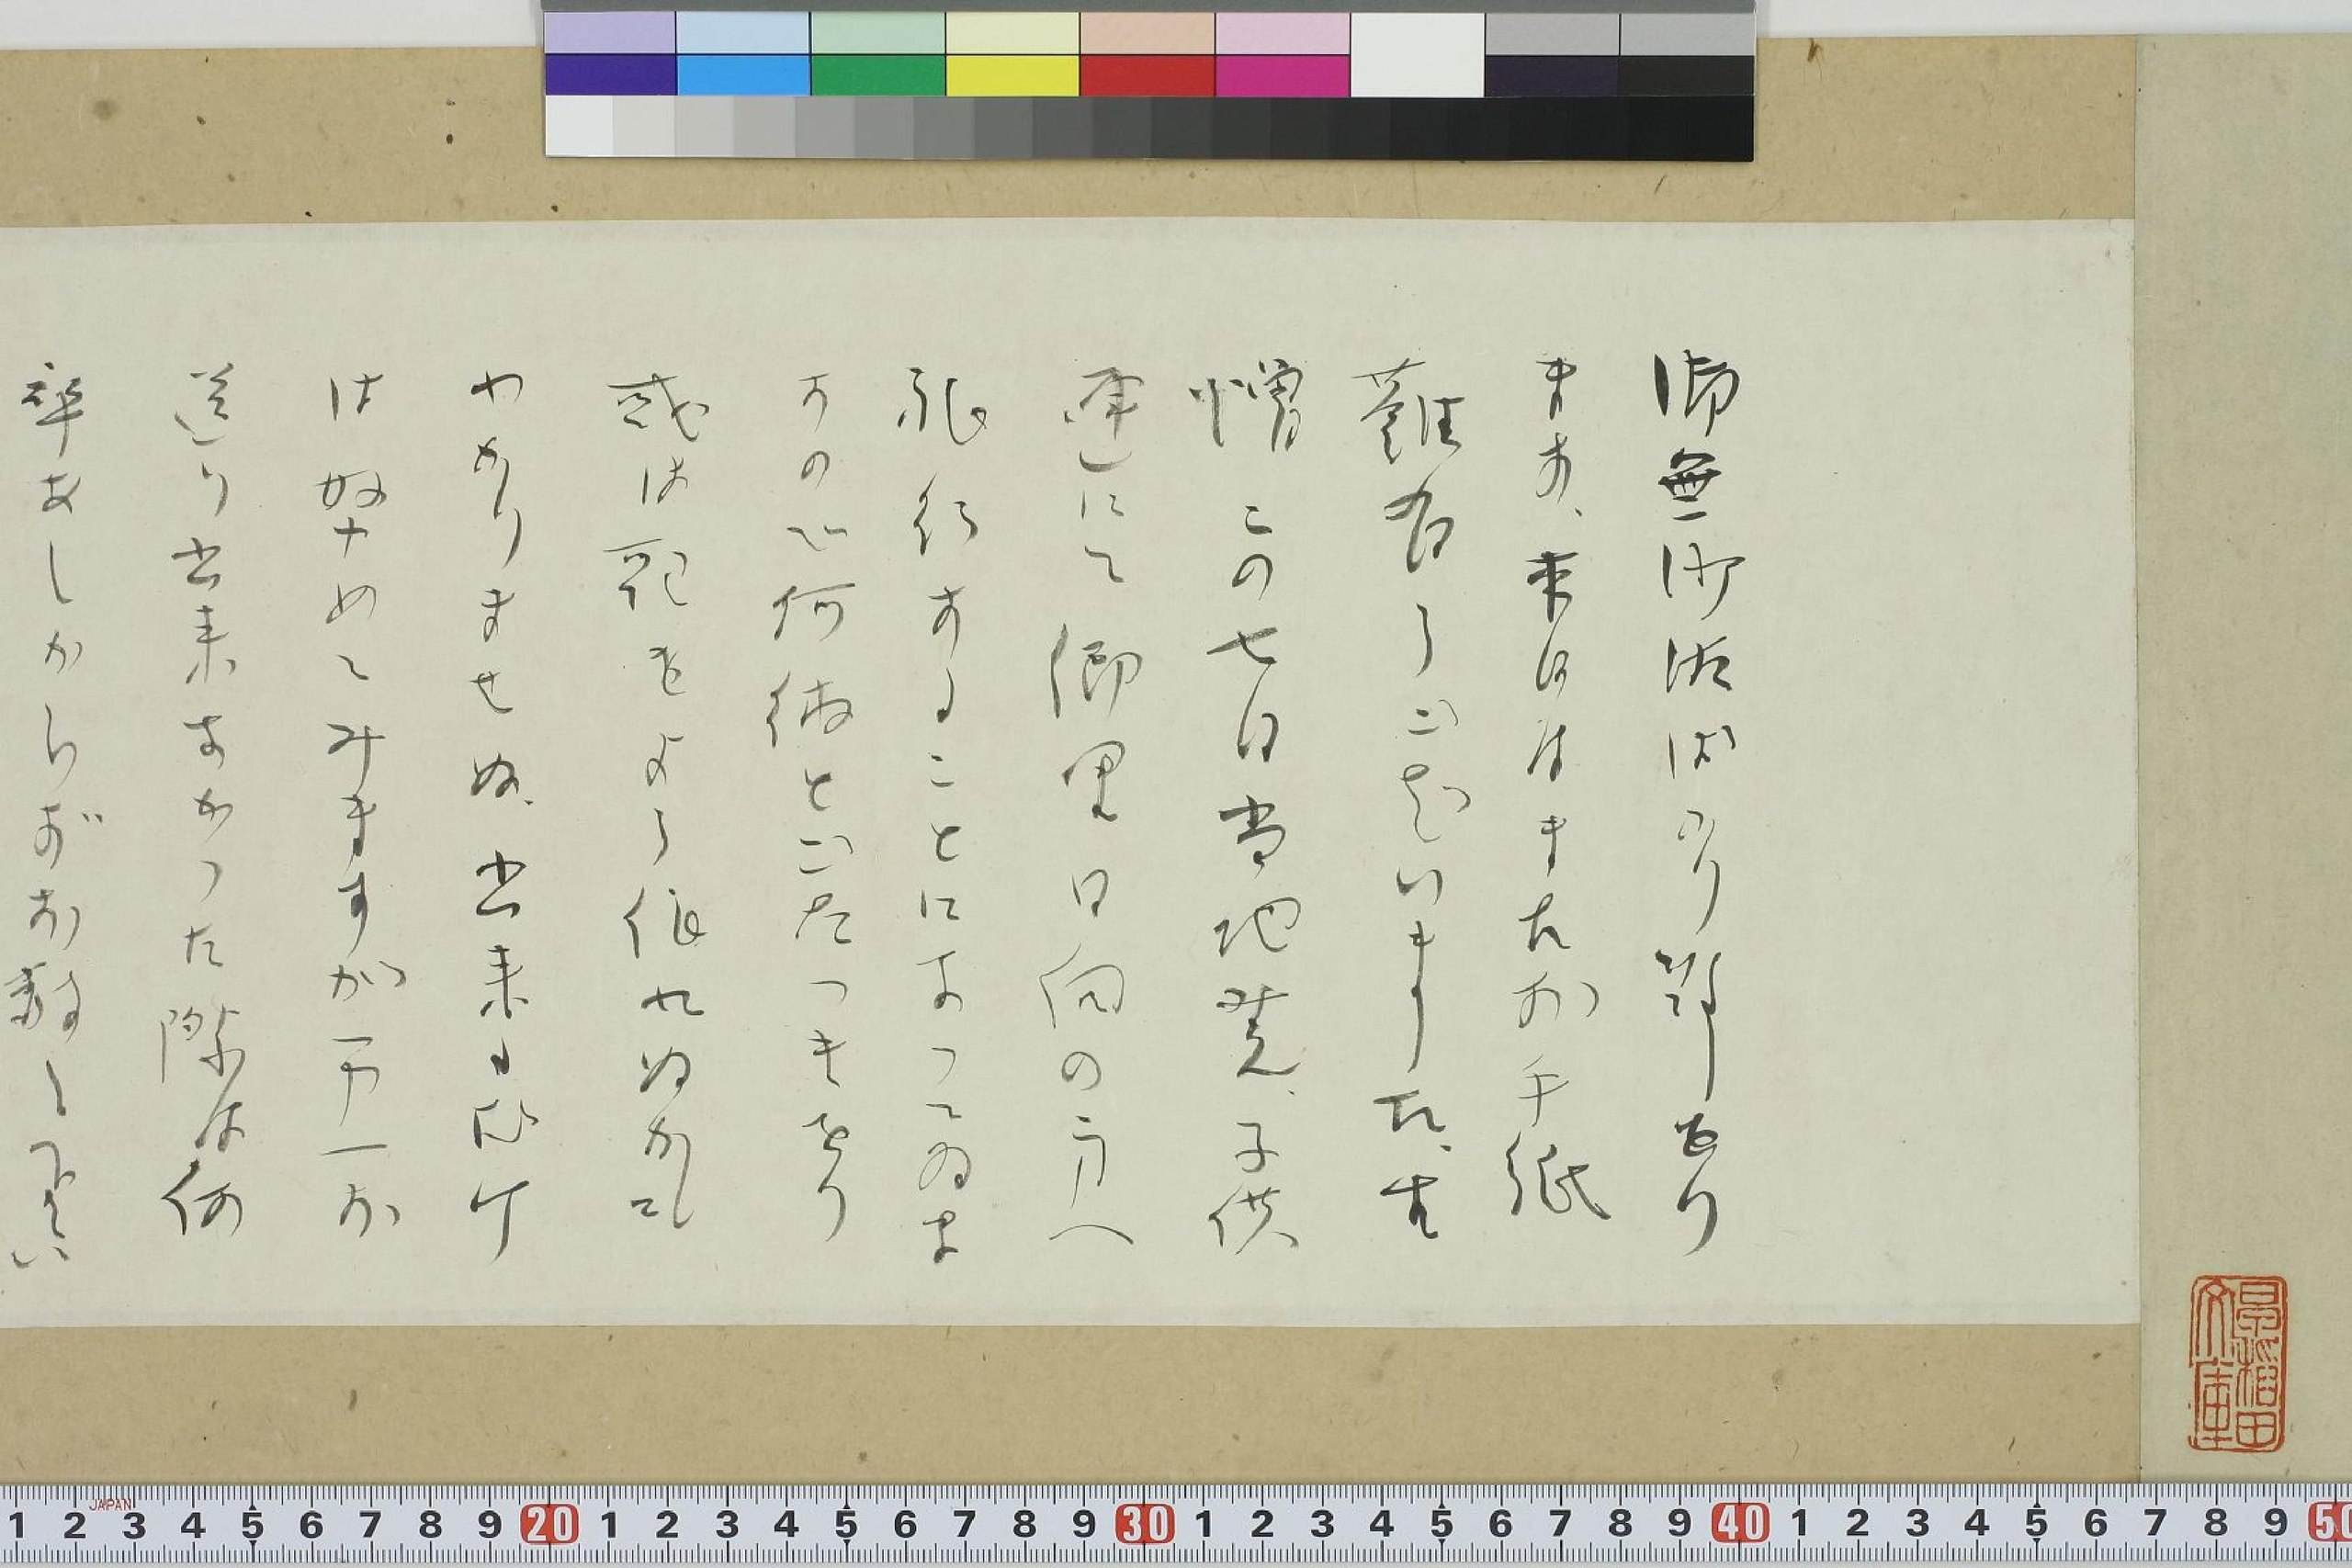 早稲田文庫
御無沙汰ばかり致しをり
ます、本日はまたお手紙
難有うございました、生
憎この七日当地発、子供
連にて郷里日向の方へ
旅行することになつてゐま
すので何彼とごたつきをり
或は歌をよう作れぬかも
わかりませぬ、出来るだけ
は努めてみますが万一お
送り出来なかつた際は何
卒あしからずお赦し下さい
JAPAN
1 2 3 4 5 6 7 8 9 20 1 2 3 4 5 6 7 8 9 30 1 2 3 4 5 6 7 8 9 40 1 2 3 4 5 6 7 8 9 50